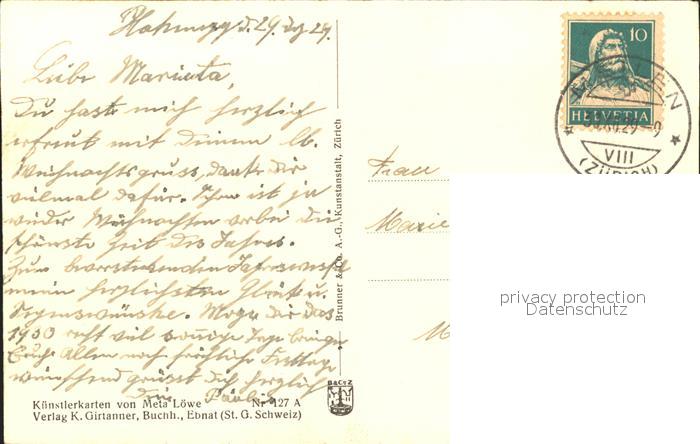 d. 29. Dez 29.
Liebe Marieta,
Du hast mich herzlich
erfreut mit Deinem lb.
Weihnachtsgruss, danke Dir
vielmal dafür. Schon ist ja
wieder Weihnachten vorbei die
schönste Zeit des Jahres.
Zum bevorstehenden Jahreswechsel
meine herzlichsten Glück u.
Segenswünsche. Möge Dir das
1930 recht viel sonnige Tage bringen
Euch Allen noch fröhliche Festtage
wünschend grüsst Dich herzlich
Künstlerkarten von Meta Löwe Nr 127 A
Verlag K. Girtanner, Buchh., Ebnat (St. G. Schweiz)
Brunner & Co. A.-G., Kunstanstalt, Zürich
B&CoZ
10
HELVETIA
VIII
(ZÜRICH)
Frau
Marie
M
privacy protection
Datenschutz